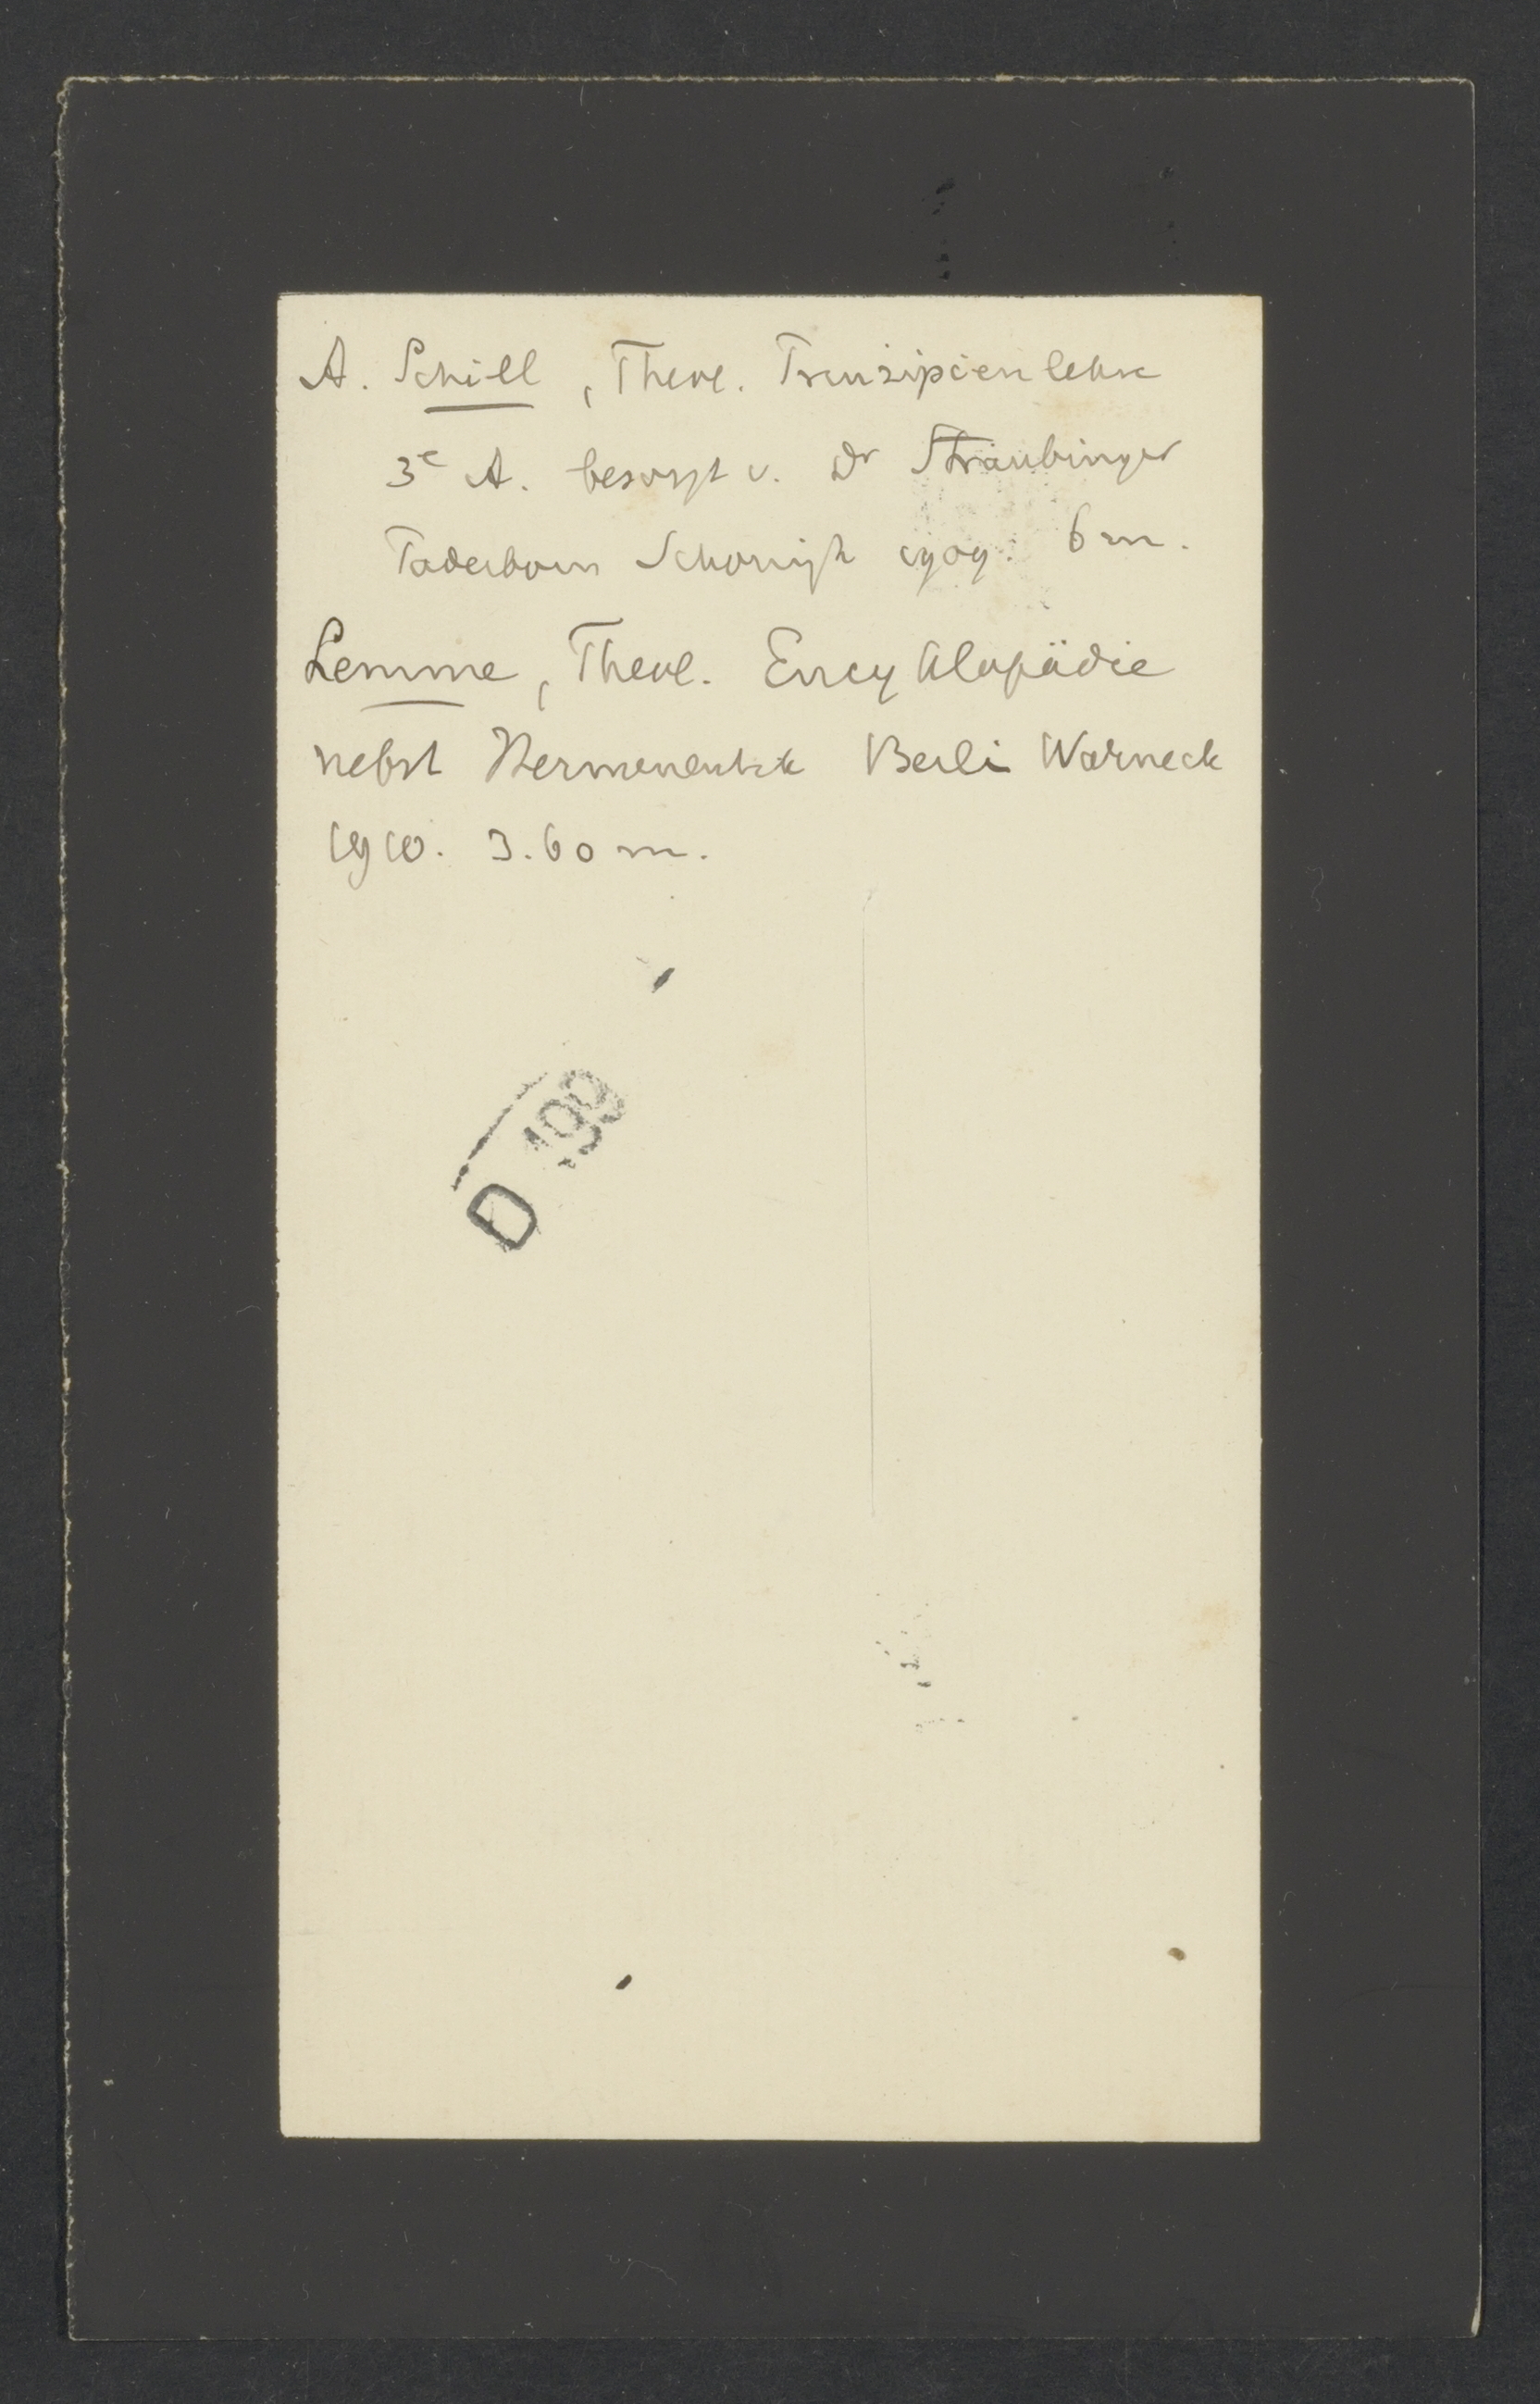 A. Schill, Theol. Prinzipienlehre
3e A. besorgt v. Dr Straubinger
Paderborn Schöningh 1909. 6 m.
Lemme, Theol. Encyklopädie
nebst Hermeneutik Berli Warneck
1910. 3.60 m.
D